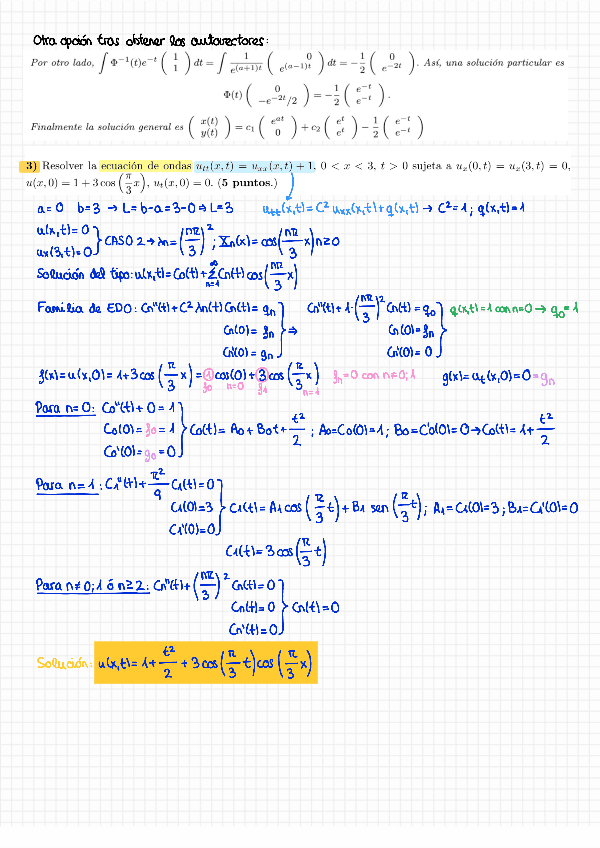 Otra opción tras obtener los autovectores:
Por otro lado, ∫ Φ⁻¹(t)e⁻ᵗ ( 1 ; 1 ) dt = ∫ 1/e^{(a+1)t} ( 0 ; e^{(a−1)t} ) dt = −1/2 ( 0 ; e^{−2t} ). Así, una solución particular es
Φ(t) ( 0 ; −e^{−2t}/2 ) = −1/2 ( e^{−t} ; e^{−t} ).
Finalmente la solución general es ( x(t) ; y(t) ) = c₁ ( e^{at} ; 0 ) + c₂ ( e^t ; e^t ) − 1/2 ( e^{−t} ; e^{−t} )
3) Resolver la ecuación de ondas u_tt(x,t) = u_xx(x,t) + 1, 0 < x < 3, t > 0 sujeta a u_x(0,t) = u_x(3,t) = 0,
u(x,0) = 1 + 3 cos(π/3 x), u_t(x,0) = 0. (5 puntos.)
a=0 b=3 → L=b-a=3-0→L=3 u_tt(x,t)=C² u_xx(x,t)+q(x,t) → C²=1; q(x,t)=1
u(x,t)=0
u_x(3,t)=0 } CASO 2→ λn=(nπ/3)²; Xn(x)=cos(nπ/3 x) n≥0
Solución del tipo: u(x,t)=C0(t)+Σ_{n=1}^{∞} Cn(t)cos(nπ/3 x)
Familia de EDO: Cn''(t)+C² λn(t) Cn(t)= qn Cn''(t)+1·(nπ/3)² Cn(t)= q0 q(x,t)=1 con n=0→ q0=1
Cn(0)= fn } ⇒ Cn(0)= fn }
Cn'(0)= gn Cn'(0)= 0
f(x)=u(x,0)=1+3cos(π/3 x)=1cos(0)+3cos(π/3 x) fn=0 con n≠0;1 g(x)=ut(x,0)=0=gn
f0 n=0 f1 n=1
Para n=0: C0''(t)+0=1
C0(0)= f0 = 1 } C0(t)= A0+B0t+t²/2 ; A0=C0(0)=1; B0=C'0(0)=0→C0(t)=1+t²/2
C0'(0)= g0 = 0
Para n=1: C1''(t)+π²/9 C1(t)=0
C1(0)=3 } C1(t)= A1 cos(π/3 t)+B1 sen(π/3 t); A1=C1(0)=3; B1=C1'(0)=0
C1'(0)=0
C1(t)=3cos(π/3 t)
Para n≠0;1 ó n≥2: Cn''(t)+(nπ/3)² Cn(t)=0
Cn(t)=0 } Cn(t)=0
Cn'(t)=0
Solución: u(x,t)=1+t²/2+3cos(π/3 t)cos(π/3 x)